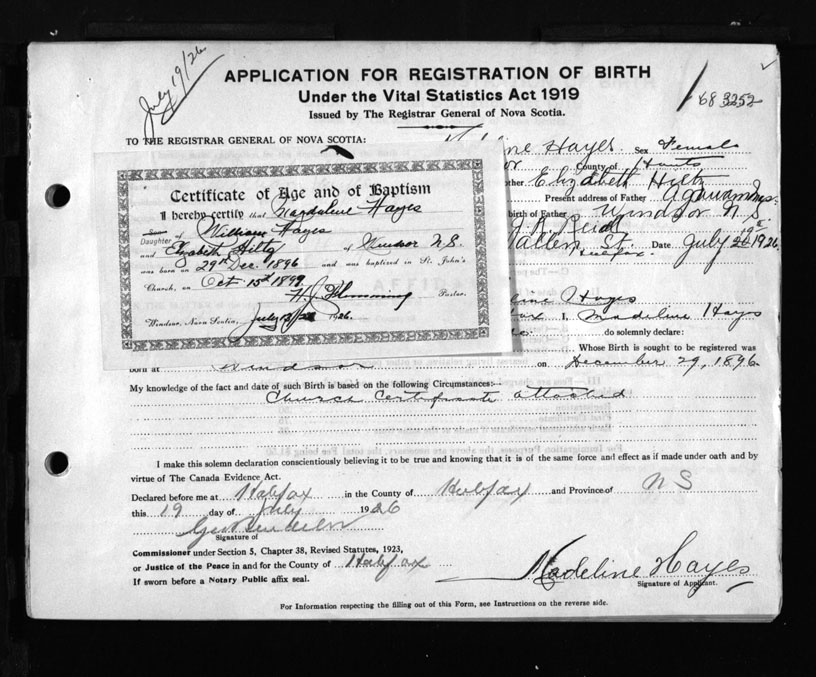 July 19/26
APPLICATION FOR REGISTRATION OF BIRTH
Under the Vital Statistics Act 1919
Issued by The Registrar General of Nova Scotia.
68 3252
TO THE REGISTRAR GENERAL OF NOVA SCOTIA:
ine Hayes Sex Female
or County of Hants
other Elizabeth Hiltz
Present address of Father
birth of Father Windsor N.S.
Allen St. Halifax. Date July 19th 1926.
Certificate of Age and of Baptism
I hereby certify that Hayes
Son
Daughter of William Hayes
and Elizabeth Hiltz of Windsor N.S.
was born on 29th Dec. 1896 and was baptized in St. John's
Church, on Oct 15th 1899
Pastor.
Windsor, Nova Scotia, July 1926.
line Hayes
fax I, Madeline Hays
do solemnly declare:
Whose Birth is sought to be registered was
born at Windsor on December 29, 1896.
My knowledge of the fact and date of such Birth is based on the following Circumstances:
Church Certificate attached
I make this solemn declaration conscientiously believing it to be true and knowing that it is of the same force and effect as if made under oath and by
virtue of The Canada Evidence Act.
Declared before me at Halifax in the County of Halifax and Province of N S
this 19 day of July 1926
Signature of
Commissioner under Section 5, Chapter 38, Revised Statutes, 1923,
or Justice of the Peace in and for the County of Halifax
If sworn before a Notary Public affix seal.
Madeline Hayes
Signature of Applicant.
For Information respecting the filling out of this Form, see Instructions on the reverse side.